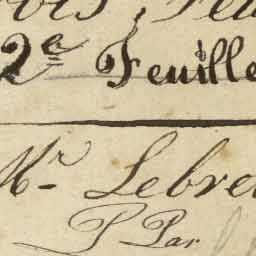 2e Feuille
Mr Lebre
P Par